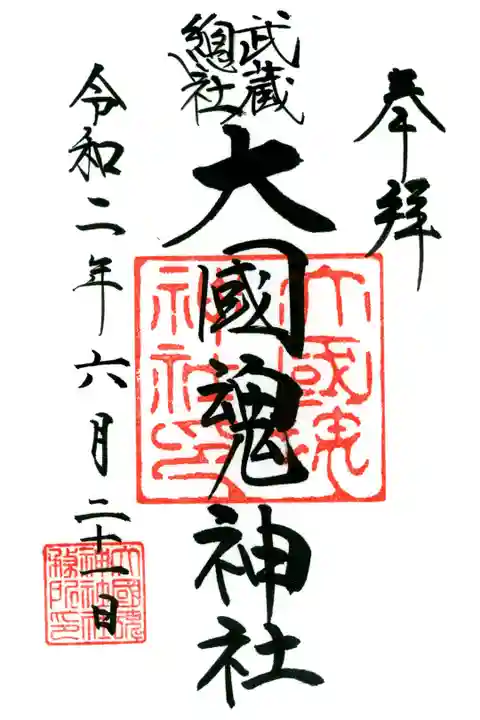 奉拝
武蔵
總社
大國魂神社
大國魂
神社印
令和二年六月二十一日
大國魂
神社社
務所印